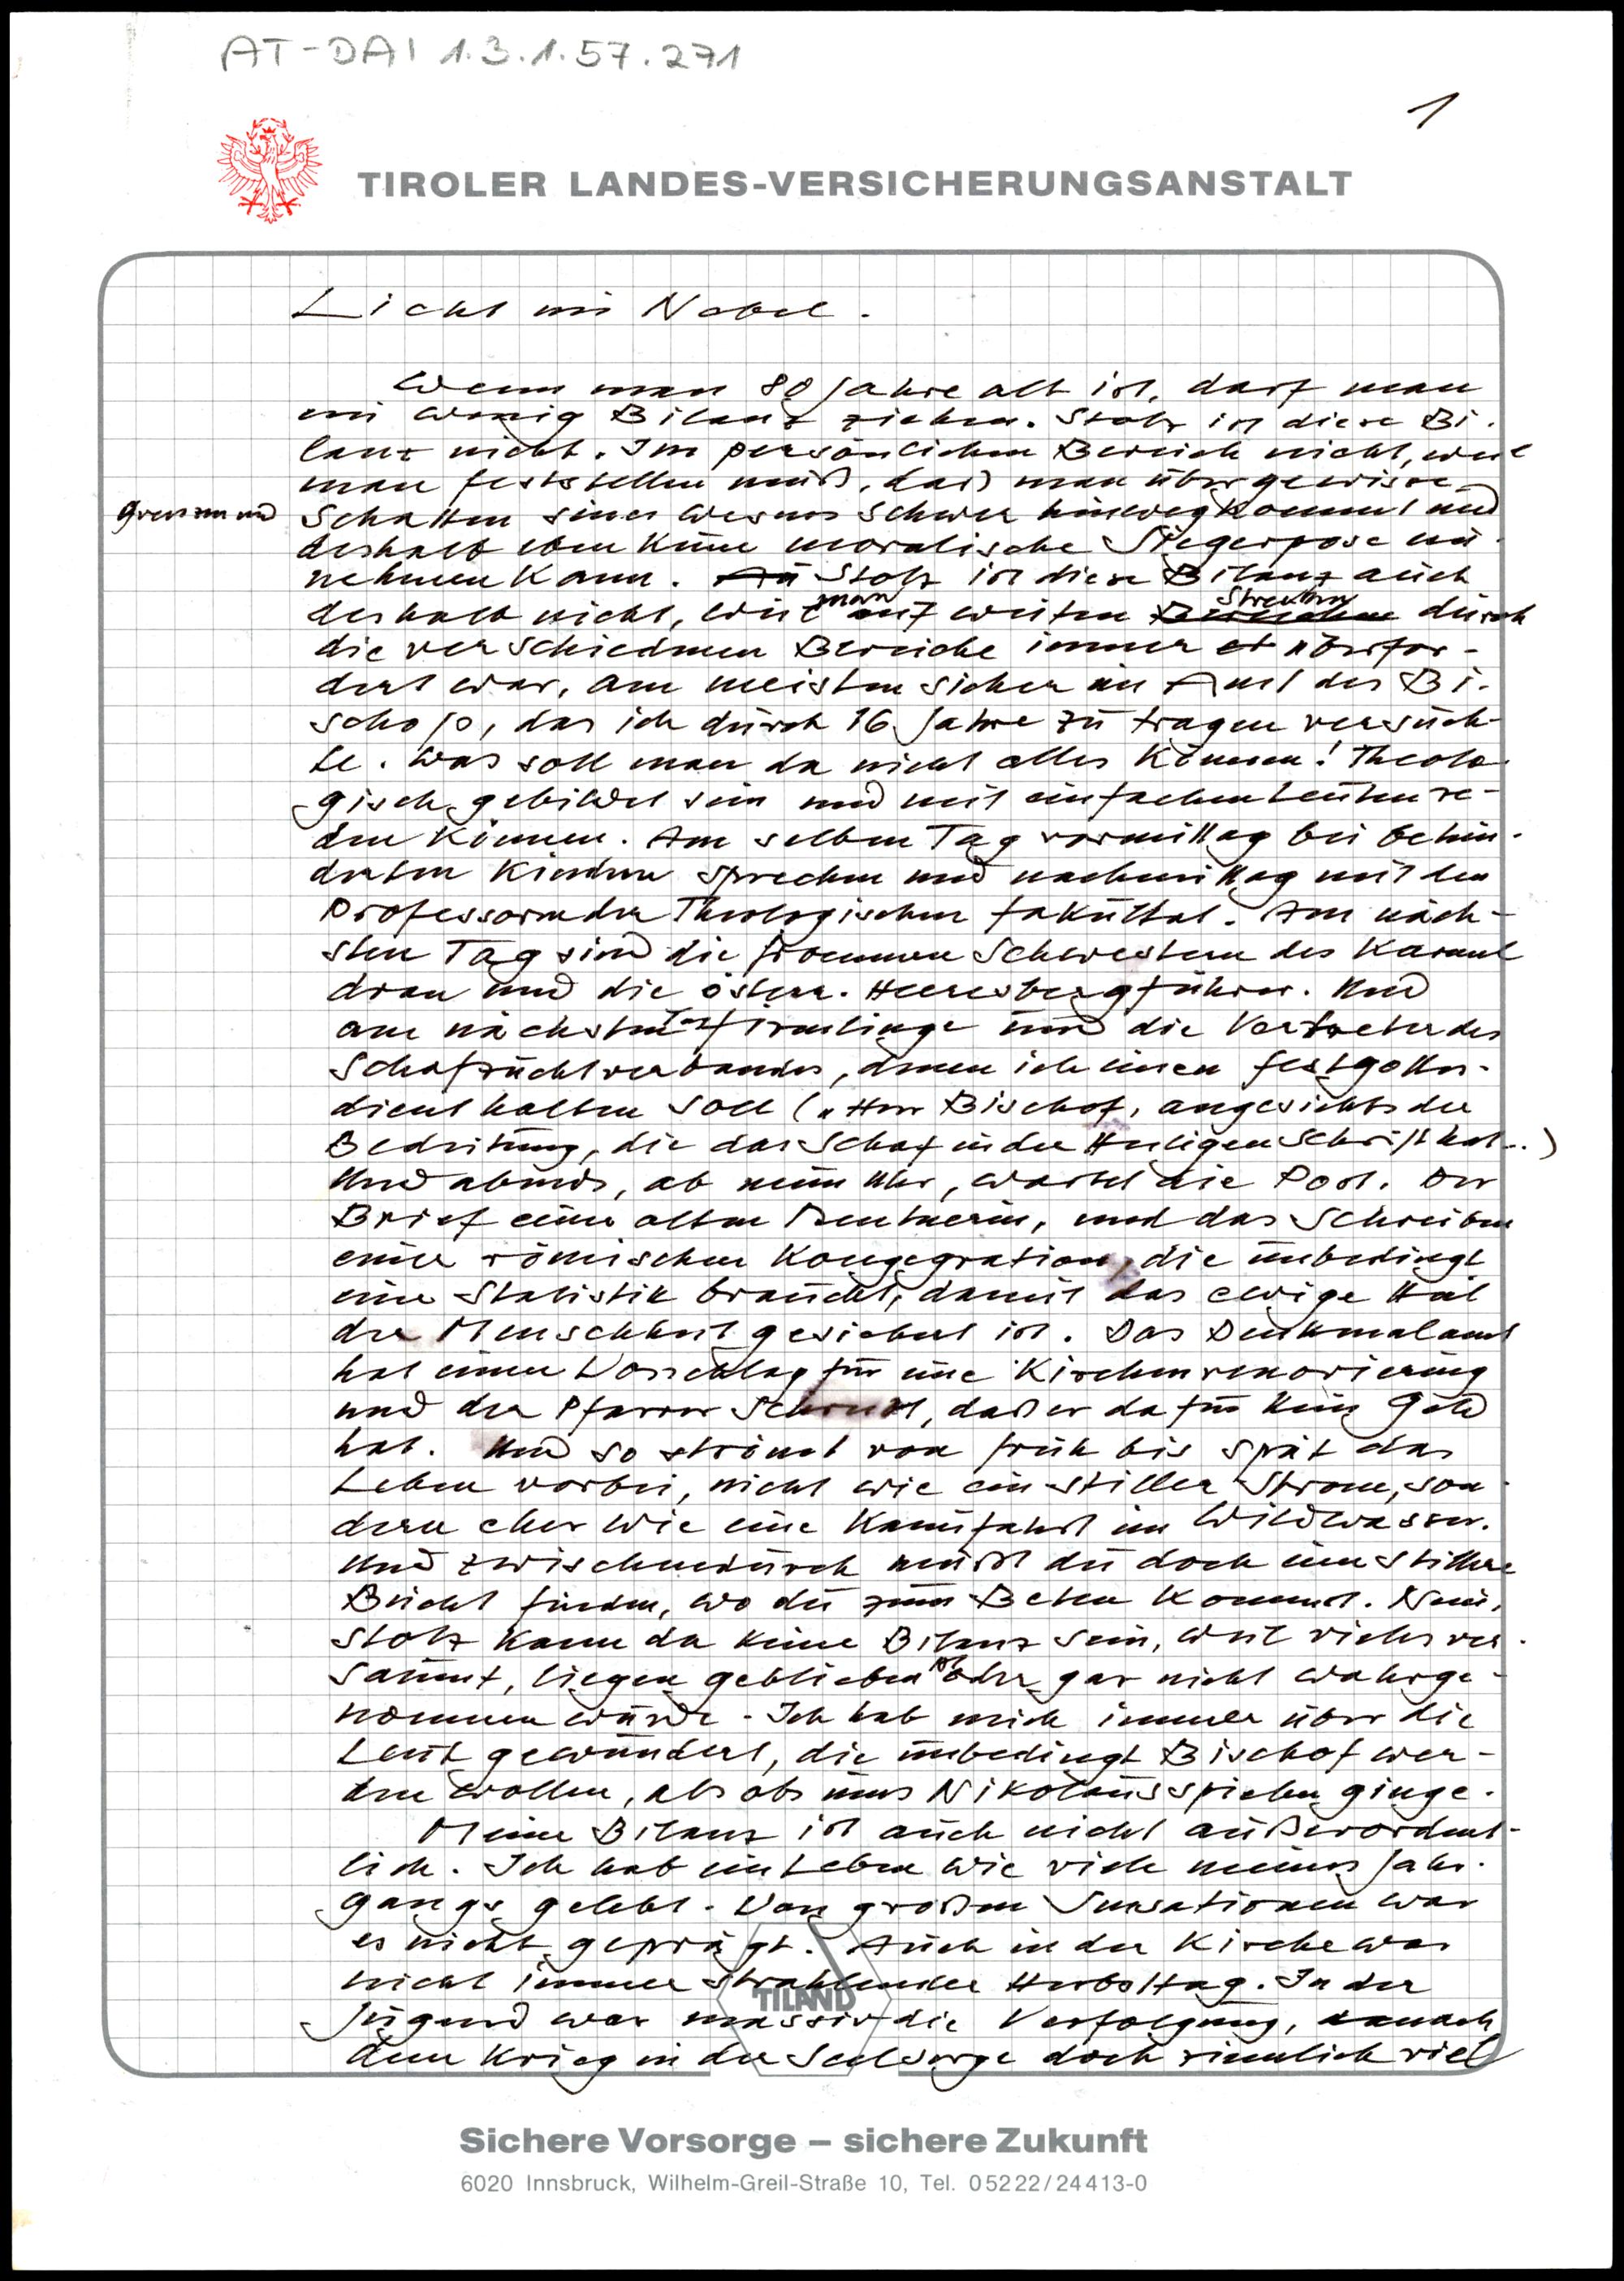 AT-DAI 1.3.1.57.271
1
TIROLER LANDES-VERSICHERUNGSANSTALT
Licht im Nebel.
Wenn man 80 Jahre alt ist, darf man
ein wenig Bilanz ziehen. Stolz ist diese Bi-
lanz nicht. Im persönlichen Bereich nicht, weil
man feststellen muß, daß man über gewisse
Grenzen und
Schatten seines Wesens schwer hinwegkommt und
deshalb eben keine moralische Siegerpose ein-
nehmen kann. Au Stolz ist diese Bilanz auch
deshalb nicht, weil man auf weiten Strecken durch
die verschiedenen Bereiche immer überfor-
dert war, am meisten sicher im Amt des Bi-
schofs, das ich durch 16 Jahre zu tragen versuch-
te. Was soll man da nicht alles können! Theolo-
gisch gebildet sein und mit einfachen Leuten re-
den können. Am selben Tag vormittag bei behin-
derten Kindern sprechen und nachmittag mit den
Professoren der Theologischen Fakultät. Am näch-
sten Tag sind die frommen Schwestern des Karmel
dran und die österr. Heeresbergführer. Und
am nächsten Tag Firmlinge und die Vertreter des
Schafzuchtverbandes, denen ich einen Festgottes-
dienst halten soll („Herr Bischof, angesichts der
Bedeutung, die das Schaf in der Heiligen Schrift hat..)
Und abends, ab neun Uhr, wartet die Post. Der
Brief einer alten Rentnerin, und das Schreiben
einer römischen Kongegration, die unbedingt
eine Statistik braucht, damit das ewige Heil
der Menschheit gesichert ist. Das Denkmalamt
hat einen Vorschlag für eine Kirchenrenovierung
und der Pfarrer schreibt, daß er dafür kein Geld
hat. Und so strömt von früh bis spät das
Leben vorbei, nicht wie ein stiller Strom, son-
dern eher wie eine Kanufahrt im Wildwasser.
Und zwischendurch mußt du doch eine stillere
Bucht finden, wo du zum Beten kommst. Nein,
stolz kann da keine Bilanz sein, weil vieles ver-
säumt, liegen geblieben ist oder gar nicht wahrge-
nommen wurde. Ich hab mich immer über die
Leute gewundert, die unbedingt Bischof wer-
den wollen, als obs ums Nikolausspielen ginge.
Meine Bilanz ist auch nicht außerordent-
lich. Ich hab ein Leben wie viele meines Jahr-
gangs gelebt. Von großen Sensationen war
es nicht geprägt. Auch in der Kirche war
nicht immer strahlender Herbsttag. In der
Jugend war massiv die Verfolgung, danach
dem Krieg in der Seelsorge doch ziemlich viel
TILAND
Sichere Vorsorge – sichere Zukunft
6020 Innsbruck, Wilhelm-Greil-Straße 10, Tel. 05222/24413-0